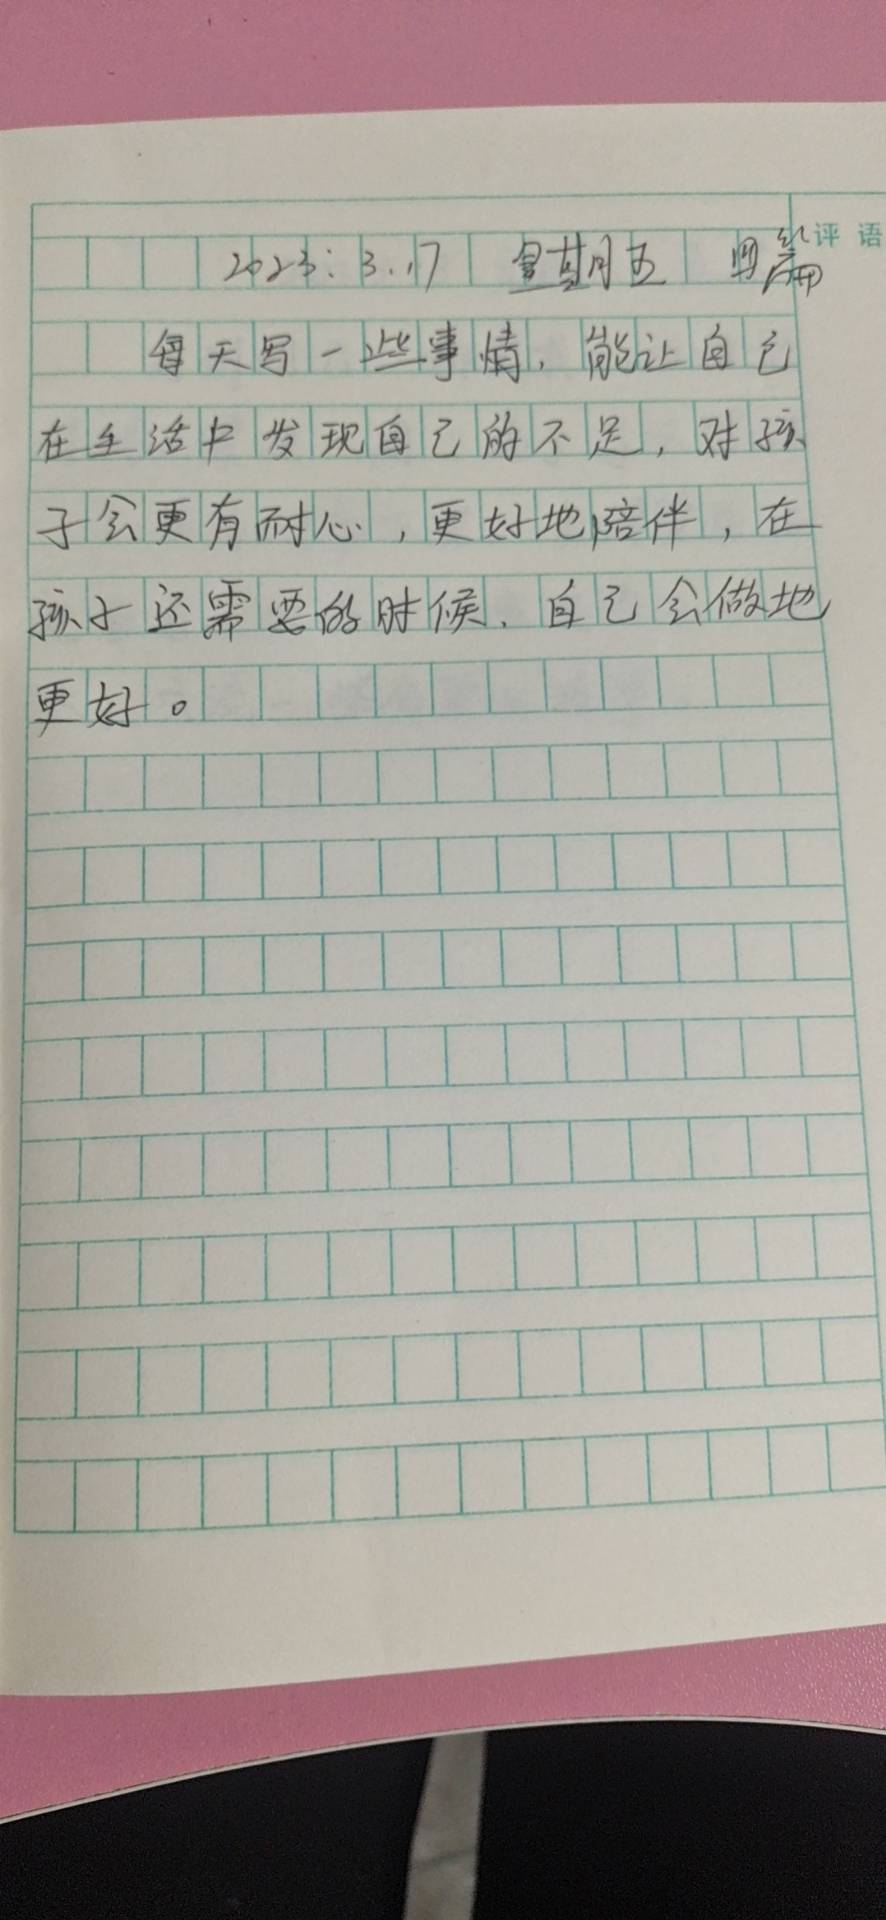 2023:3.17 星期五 四篇
评语
每天写一些事情，能让自己
在生活中发现自己的不足，对孩
子会更有耐心，更好地陪伴，在
孩子还需要的时候、自己会做地
更好。